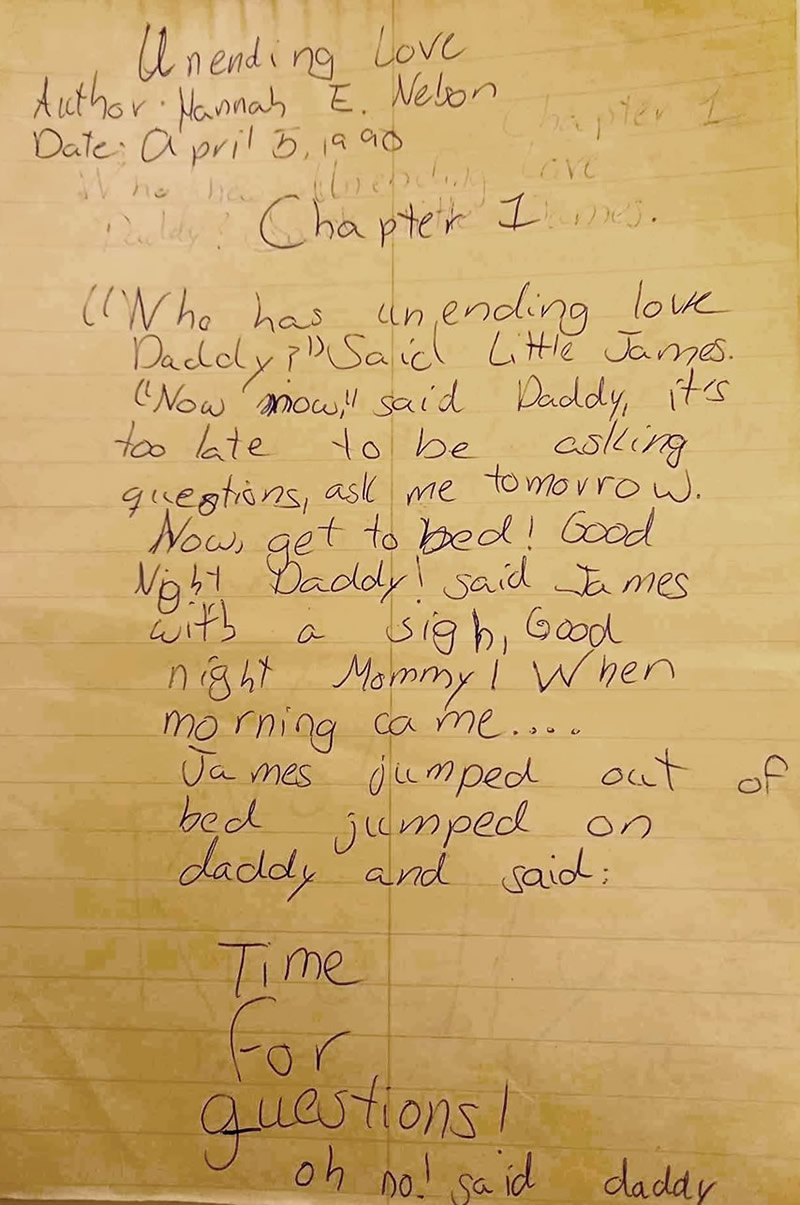 Unending Love
Author: Hannah E. Nelson
Date: April 5, 1990
Chapter 1
Who has Unending Love
Daddy? Said Little James.
Chapter 1
"Who has unending love
Daddy?" Said Little James.
"Now now," said Daddy, it's
too late to be asking
questions, ask me tomorrow.
Now, get to bed! Good
Night Daddy! said James
with a sigh, Good
night Mommy! When
morning came....
James jumped out of
bed jumped on
daddy and said:
Time
For
questions!
oh no! said daddy